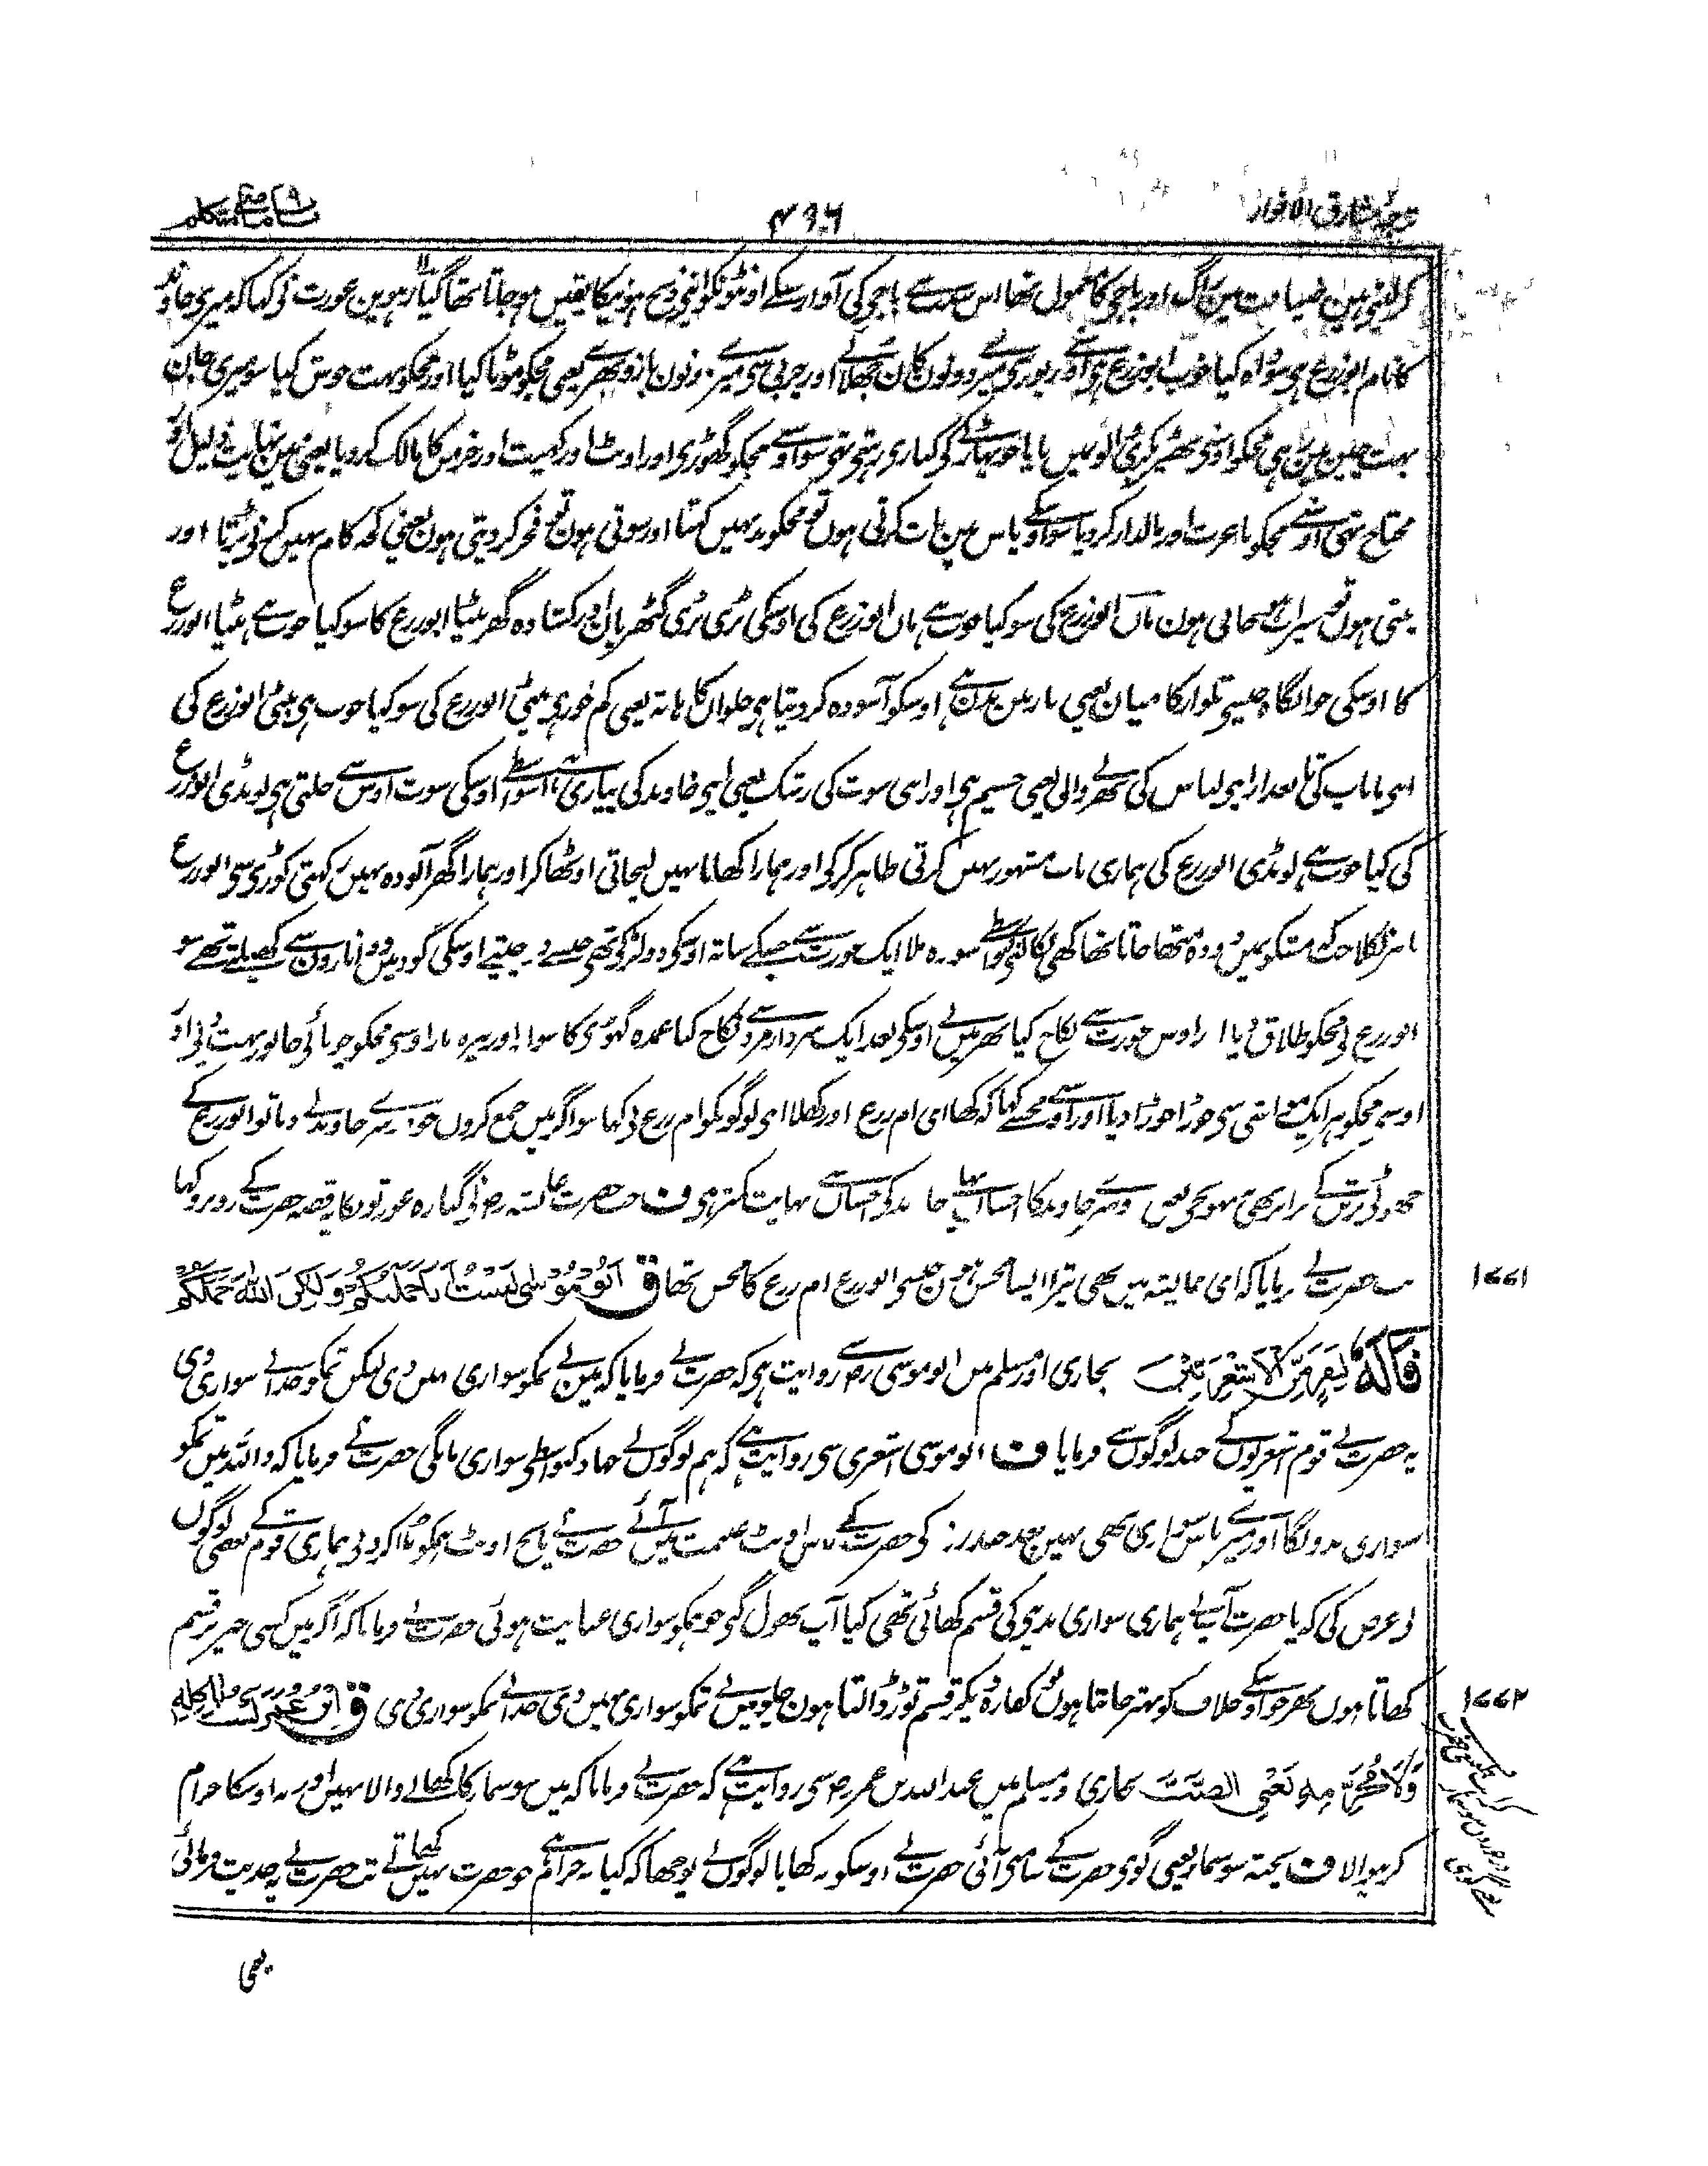 ترجمہ مشارق الانوار
۴۹۶
کر لیتی ہین ضیافت مین راگ اور باجی کا معمول تھا اس سبب سے باجی کی آواز سنکے اونٹونکو اپنی ذبح ہونیکا یقین ہو جاتا تھا گیارہوین عورت نی کہا کہ میری خاوند
کا نام ابو زرع ہی سو واہ کیا خوب ابو زرع ہی اوسنے زیور سی میرے دونون کان جھلائے اور چربی سی میرے دونون بازو بھرے یعنی مجکو موٹا کیا اور مجکو بہت خوش کیا سو میری جان
بہت چین مین رہی مجکو اوسنی بھیڑ بکری والونمیں پایا جو پہاڑ کی کناری رہتی تھی سو اوسنے مجکو گھوڑی اور اونٹ اور کھیت اور خرمن کا مالک کر دیا یعنی مین نہایت ذلیل اور
محتاج تھی اوسنے مجکو باعزت اور مالدار کر دیا سو اوسکے پاس مین بات کرتی ہوں تو مجکو بد نہیں کہتا اور سوتی ہون تو فجر کر دیتی ہون یعنی کچھ کام نہیں کرنی پڑتا اور
پیتی ہوں تو سیراب ہو جاتی ہون ماں ابو زرع کی سو کیا خوب ہے ماں ابو زرع کی اوسکی بڑی بڑی گٹھریاں اور کشادہ گھر بیٹا ابو زرع کا سو کیا خوب ہے بیٹا ابو زرع
کا اوسکی خوابگاہ جیسی تلوار کا میان یعنی نازنین بدن ہے اوسکو آسودہ کر دیتا ہی حلوان کا ہاتہ یعنی کم خور ہی بیٹی ابو زرع کی سو کیا خوب ہی بیٹی ابو زرع کی
اپنی ما باپ کی تابعدار اپنی لباس کی بھرنے والی یعنی جسیم ہی اور اپنی سوت کی رشک یعنی اپنی خاوند کی پیاری ہے اسواسطے اوسکی سوت اوس سے جلتی ہی لونڈی ابو زرع
کی کیا خوب ہے لونڈی ابو زرع کی ہماری بات مشہور نہیں کرتی ظاہر کر کی اور ہمارا کھانا نہیں لیجاتی اوٹھا کر اور ہمارا گھر آلودہ نہیں رکھتی کوڑی سی ابو زرع
باہر نکلا جبکہ مشکونمیں دودہ متھا جاتا تھا گھی نکالنی کیواسطے سو وہ ملا ایک عورت سے جسکے ساتہ اوسکی دو لڑکی تھی جیسے دو چیتے اوسکی گود میں دو اناروں سے کھیلتے تھے سو
ابو زرع نی مجکو طلاق دیا اور اوس عورت سے نکاح کیا پھر میں نے اوسکی بعد ایک سردار مرد سے نکاح کیا عمدہ گھوڑی کا سوار اور نیزہ باز اوسنی مجکو چوپائی جانور بہت دئی اور
اوسنے مجکو ہر ایک مواشی سی جوڑا جوڑا دیا اور اوسنے مجھسے کہا کہ کھا ای ام زرع اور کھلا اپنی لوگونکو ام زرع نی کہا سو اگر میں جمع کروں جو دوسرے خاوند نے دیا تو ابو زرع کے
چھوٹی برتن کے برابر بھی نہو پہنچی یعنی دوسرے خاوند کا احسان پہلے خاوند کی احسان سے نہایت کمتر ہی ف حضرت عائشہ رض نی گیارہ عورتوں کا قصہ حضرت کے روبرو کہا
تب حضرت نے فرمایا کہ ای عایشہ میں بھی تیرا ایسا محسن ہوں جیسی ابو زرع ام زرع کا محسن تھا ق اَبُو مُوْسٰی لَسْتُ اَنَا حَمَلْتُكُمْ وَلٰكِنَّ اللّٰهَ حَمَلَكُمْ
۱۷۷۱
قَالَهُ لِنَفَرٍ مِّنَ الْاَشْعَرِيِّيْنَ بخاری اور مسلم میں ابو موسی رض سے روایت ہی کہ حضرت نے فرمایا کہ مین نے تمکو سواری نہیں دی لیکن تمکو خدا نے سواری دی
یہ حضرت نے قوم اشعریوں کے چند لوگوں سے فرمایا ف ابو موسی اشعری سی روایت ہے کہ ہم لوگوں نے جہاد کیواسطی سواری مانگی حضرت نے فرمایا کہ واللہ میں تمکو
سواری ندونگا اور میرے پاس سواری بھی نہین بعد چند روز کی حضرت کے پاس اونٹ غنیمت میں آئے حضرت نے پانچ اونٹ ہمکو بلا کر دئی ہماری قوم کے بعضی لوگوں
نی عرض کی کہ یا حضرت آپنے ہماری سواری ندینی کی قسم کھائی تھی کیا آپ بھول گئی جو ہمکو سواری عنایت ہوئی حضرت نے فرمایا کہ اگر میں کسی چیز پر قسم
کھاتا ہوں پھر جو اوسکے خلاف کو بہتر جانتا ہوں تو کفارہ دیکر قسم توڑ ڈالتا ہون چلو مین نے تمکو سواری نہیں دی خدا نے تمکو سواری دی ق اِبْنُ عُمَرَ لَسْتُ بِاٰكِلِهٖ
۱۷۷۲
وَلَا مُحَرِّمِهٖ يَعْنِى الضَّبَّ بخاری و مسلم میں عبداللہ بن عمر رض سی روایت ہے کہ حضرت نے فرمایا کہ میں سوسمار کا کھانے والا نہیں اور نہ اوسکا حرام
کرنیوالا ف پختہ سوسمار یعنی گوہ حضرت کے سامہنی آئی حضرت نے اوسکو نہ کھایا لوگوں نے پوچھا کہ کیا یہ حرام ہے جو حضرت نہیں کھاتے تب حضرت نے یہ حدیث فرمائی
یعنی